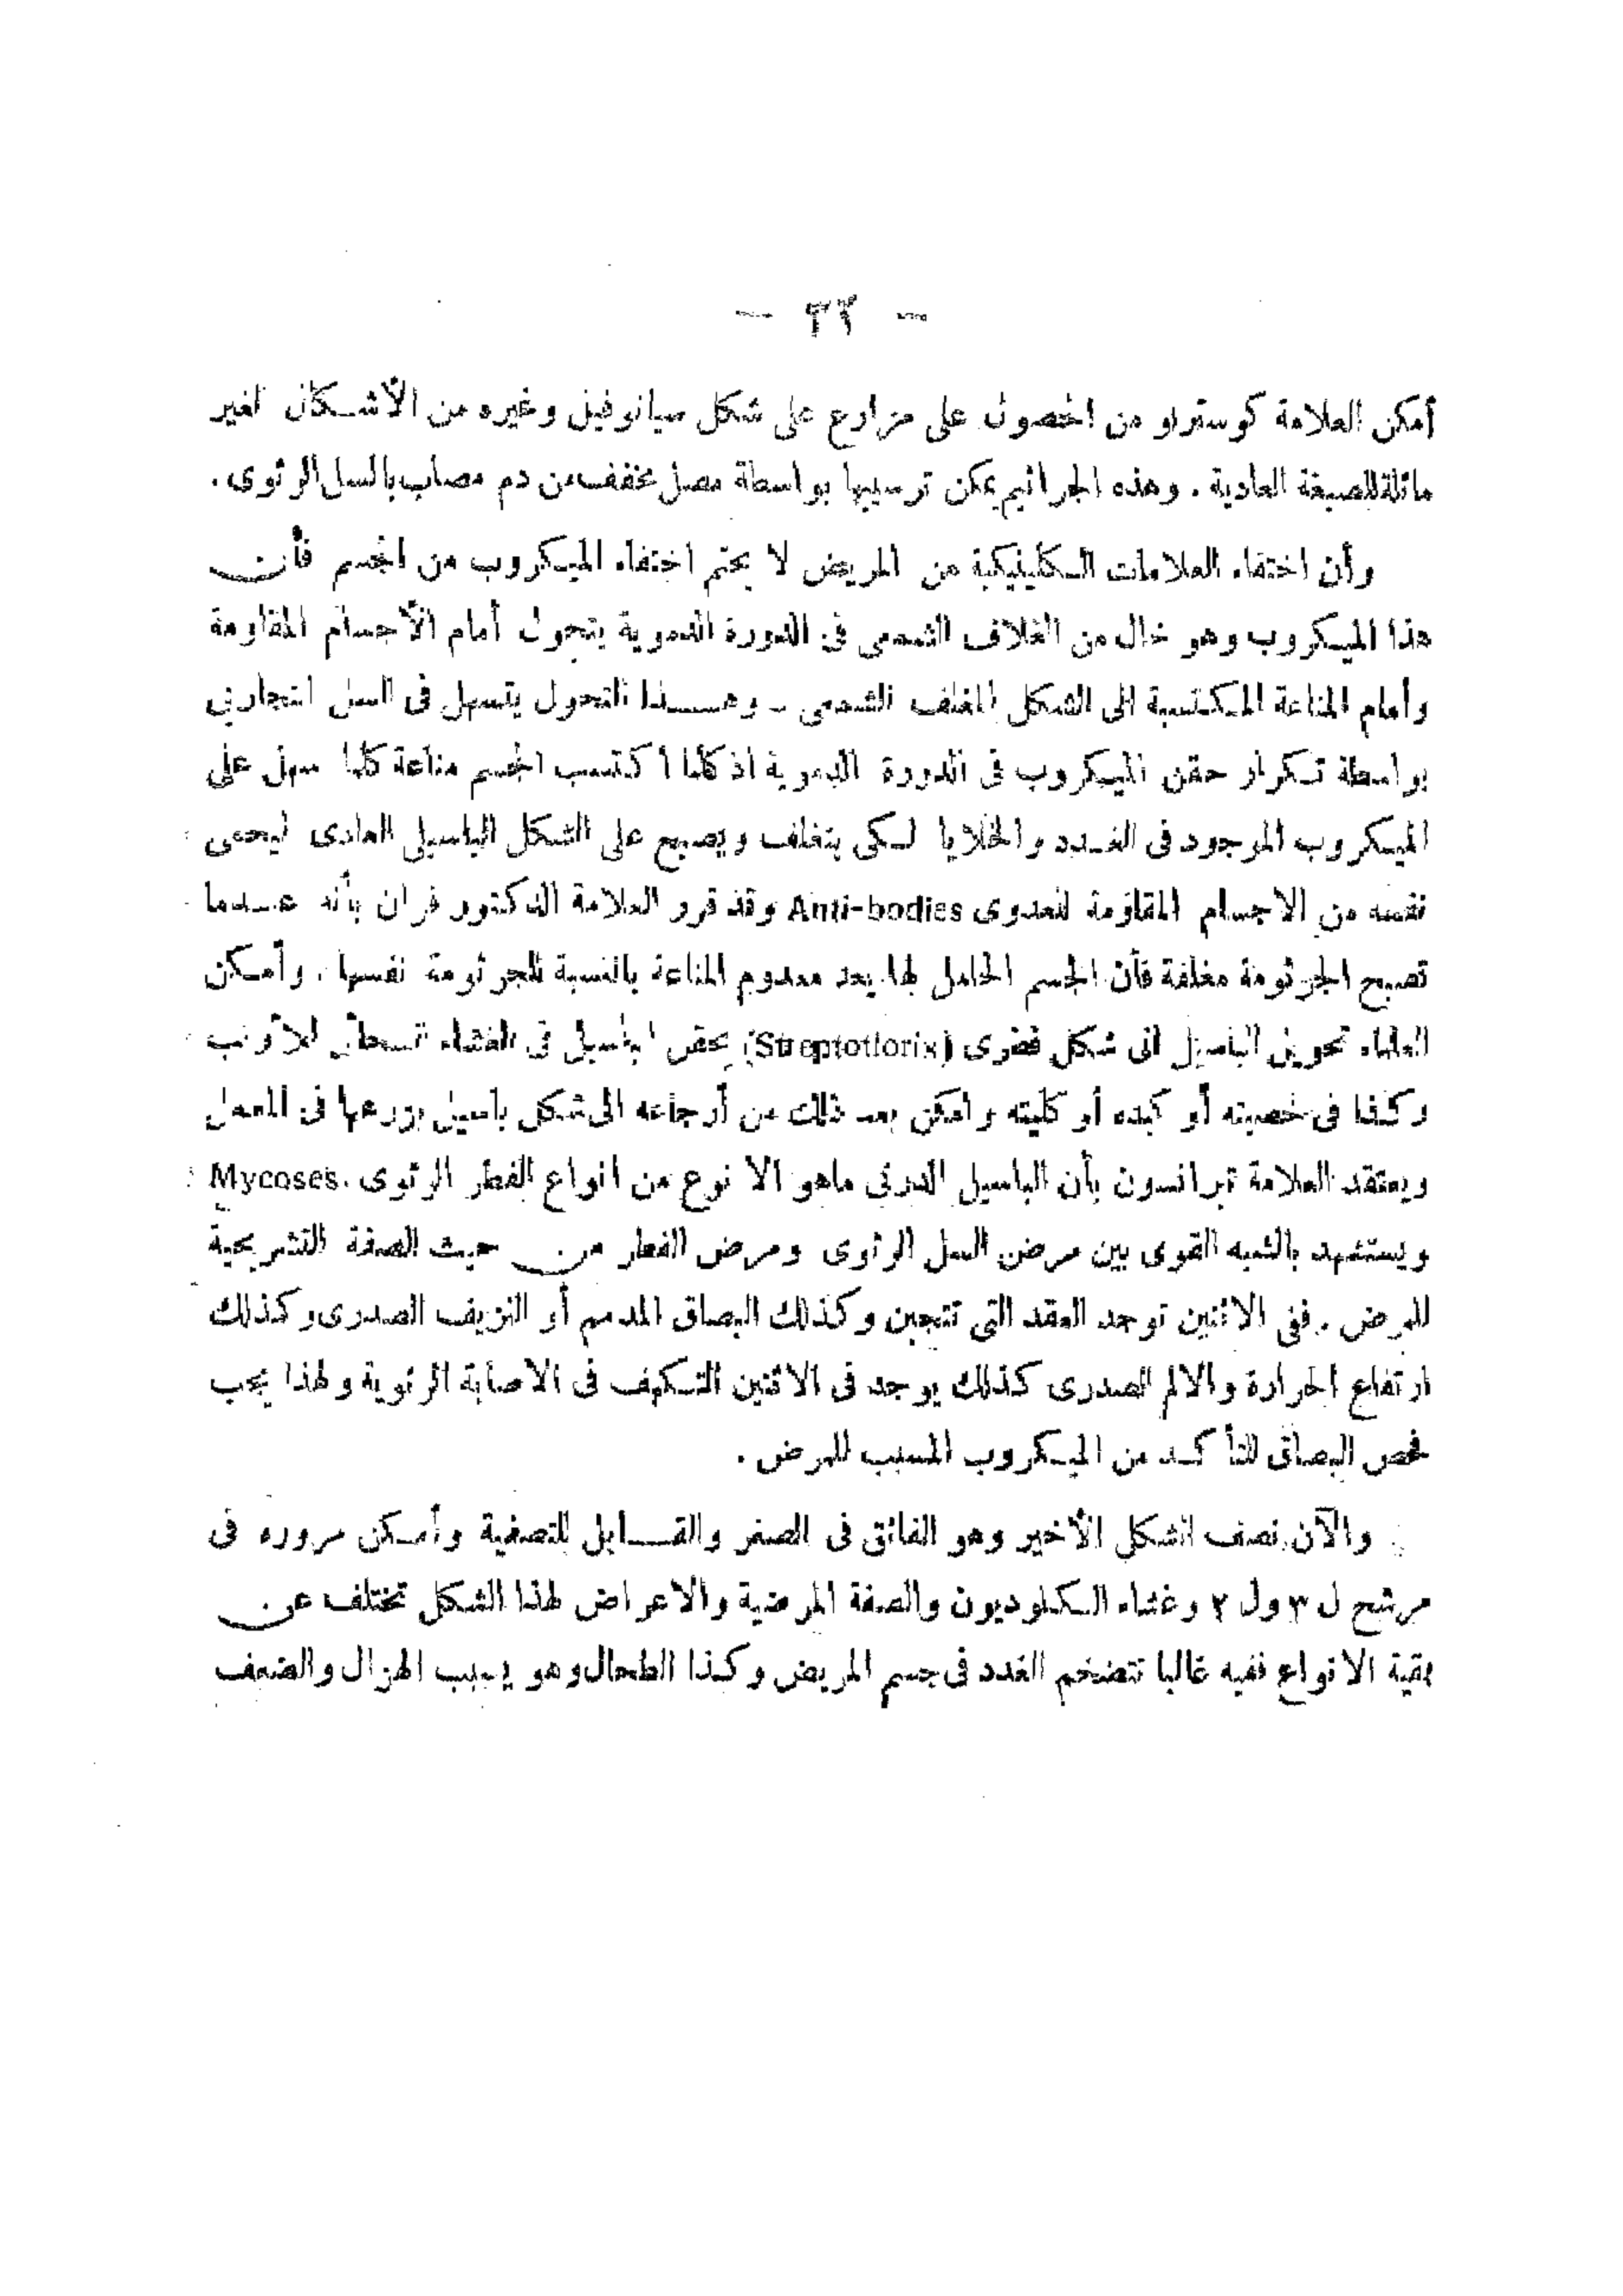 — ٣٢ —
أمكن العلامة كوسترلو من الحصول على مزارع على شكل سيانوفيل وغيره من الأشكال الغير
ماثلة للصبغة العادية . وهذه الجراثيم يمكن ترسيبها بواسطة مصل مخفف من دم مصاب بالسل الرئوى .
وأن اختفاء العلامات الكلينيكية من المريض لا يحتم اختفاء الميكروب من الجسم فأن
هذا الميكروب وهو خال من الغلاف الشمعى فى الدورة الدموية يتحول أمام الأجسام المقاومة
وأمام المناعة المكتسبة الى الشكل المغلف الشمعى ـ وهذا التحول يتسهل فى السل التجاربي
بواسطة تكرار حقن الميكروب فى الدورة الدموية اذ كلما اكتسب الجسم مناعة كلما سهل على
الميكروب الموجود فى الغدد والخلايا لكى يتغلف ويصبح على الشكل الباسيلى العادى ليحمى
نفسه من الاجسام المقاومة للعدوى Anti-bodies وقد قرر العلامة الدكتور فران بأنه عندما
تصبح الجرثومة مغلفة فأن الجسم الحامل لها يعد معدوم المناعة بالنسبة للجرثومة نفسها . وأمكن
العلماء تحويل الباسيل الى شكل فطرى (Streptotlorix) بحقن الباسيل فى الغشاء السحائى للأرنب
وكذا فى خصيته أو كبده أو كليته وامكن بعد ذلك من أرجاعه الى شكل باسيل بزرعها فى المعمل
ويعتقد العلامة تبرانسون بأن الباسيل الدرنى ماهو الا نوع من انواع الفطر الرئوى Mycoses.
ويستشهد بالشبه القوى بين مرض السل الرئوى ومرض الفطر من حيث الصفة التشريحية
للمرض . ففى الاثنين توجد العقد التى تتجبن وكذلك البصاق المدمم أو النزيف الصدرى وكذلك
ارتفاع الحرارة والالم الصدرى كذلك يوجد فى الاثنين التكهف فى الاصابة الرئوية ولهذا يجب
فحص البصاق للتأكد من الميكروب المسبب للمرض .
والآن نصف الشكل الأخير وهو الفائق فى الصغر والقابل للتصفية وأمكن مروره فى
مرشح ل ٣ ول ٢ وغشاء الكلوديون والصفة المرضية والاعراض لهذا الشكل تختلف عن
بقية الانواع ففيه غالبا تتضخم الغدد فى جسم المريض وكذا الطحال وهو يسبب الهزال والضعف